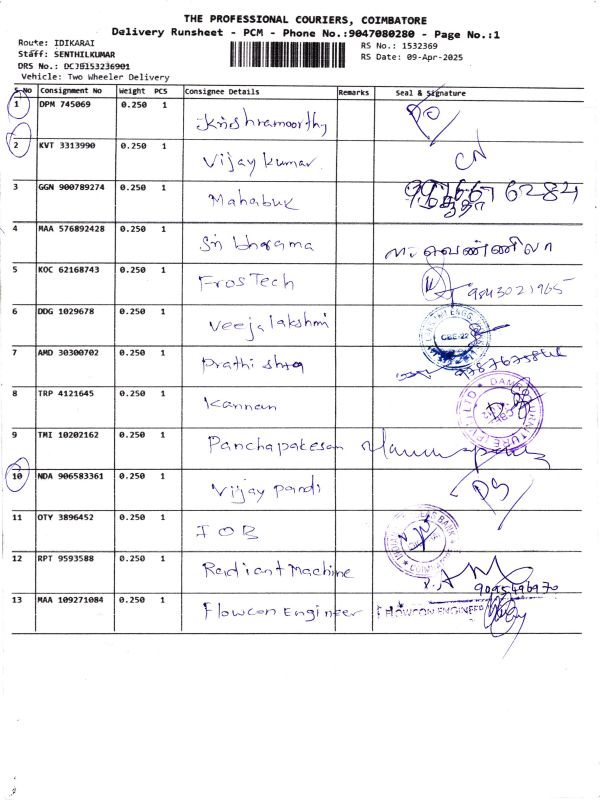 THE PROFESSIONAL COURIERS, COIMBATORE
Delivery Runsheet - PCM - Phone No.:9047080280 - Page No.:1
Route: IDIKARAI
Staff: SENTHILKUMAR
DRS No.: DCJB153236901
Vehicle: Two Wheeler Delivery
RS No.: 1532369
RS Date: 09-Apr-2025
S.No Consignment No Weight PCS Consignee Details Remarks Seal & Signature
1 DPM 745069 0.250 1 Krishramoorthy
2 KVT 3313990 0.250 1 Vijay kumar CN
3 GGN 900789274 0.250 1 Mahabuk
4 MAA 576892428 0.250 1 Sri bharama வெண்ணிலா
5 KOC 62168743 0.250 1 Fros Tech 9843021965
6 DDG 1029678 0.250 1 Veejalakshmi
7 AMD 30300702 0.250 1 Prathi
8 TRP 4121645 0.250 1 Kannan
9 TMI 10202162 0.250 1 Panchapakesan
10 NDA 906583361 0.250 1 Vijay pandi DS
11 OTY 3896452 0.250 1 IOB
12 RPT 9593588 0.250 1 Radiant Machine
9095496970
13 MAA 109271084 0.250 1 Flowcon Engineer FLOWCON ENGINEER